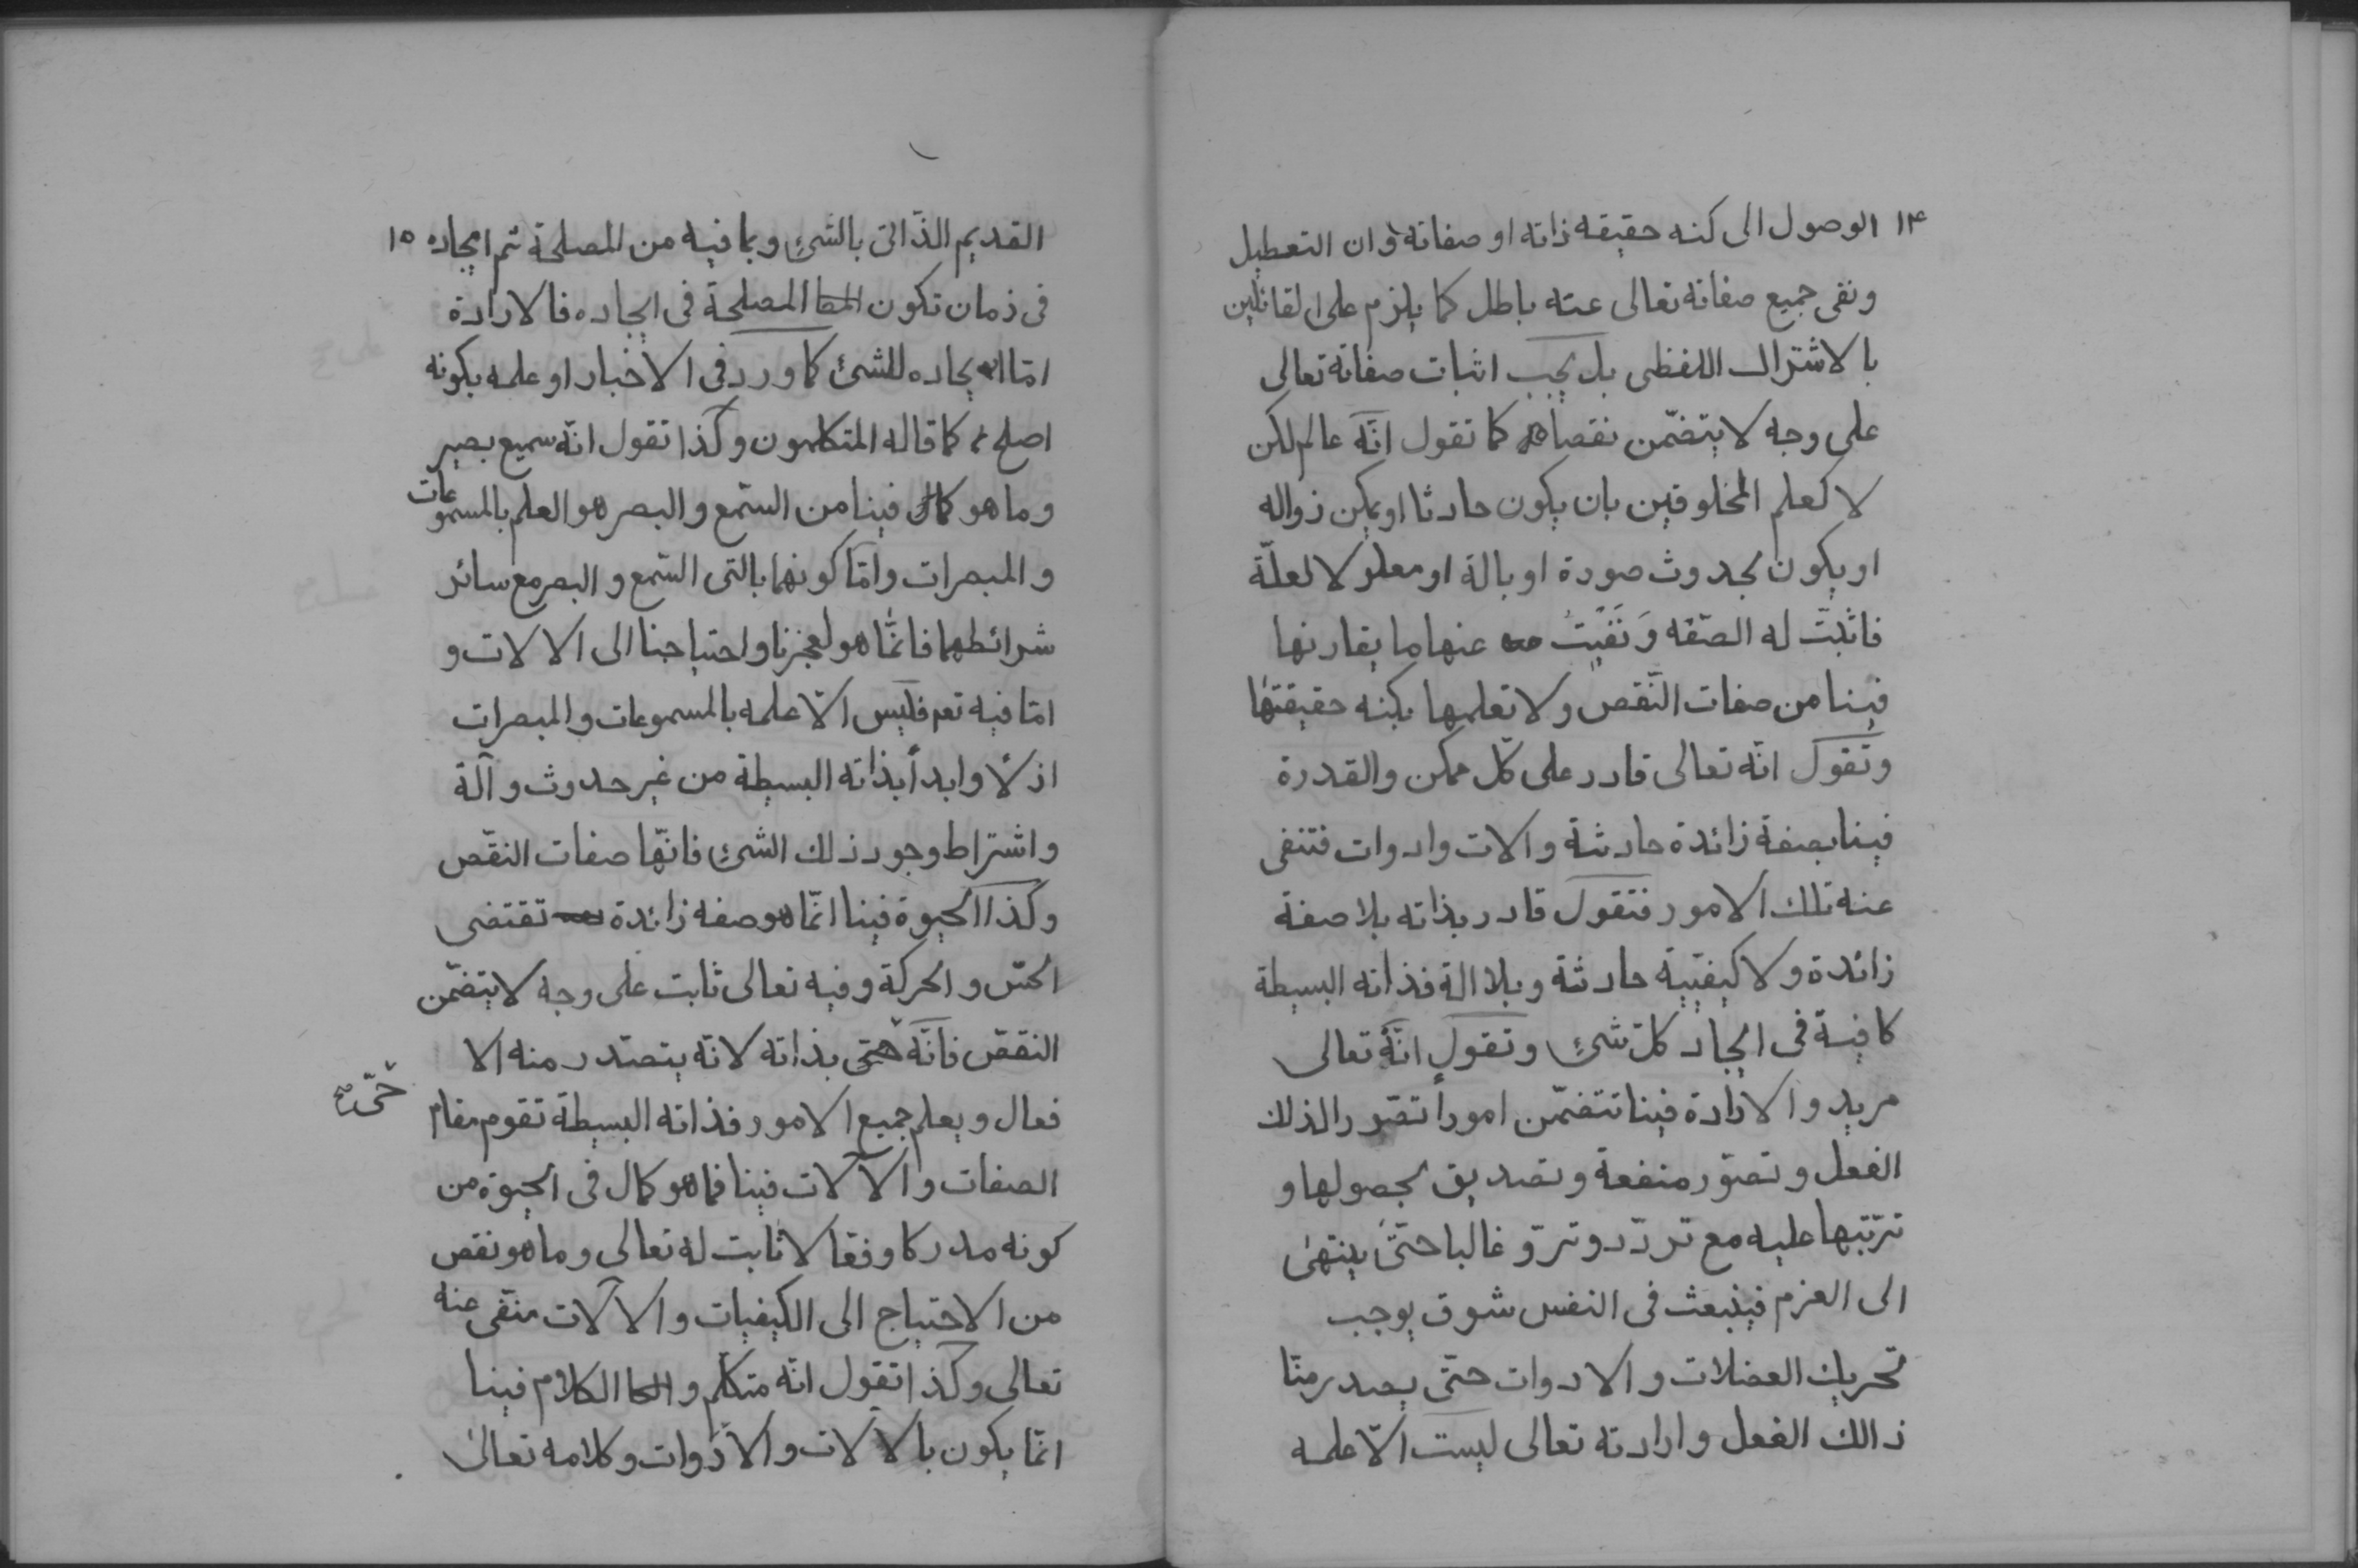 ١٤ الوصول الى كنه حقيقه ذاته او صفاته و ان التعطيل
ونفى جميع صفاته تعالى عنه باطل كما يلزم على القائلين
بالاشتراك اللفظى بل يجب اثبات صفاته تعالى
على وجه لا يتضمّن نقصا كما تقول انّه عالم لكن
لا كعلم المخلوقين بان يكون حادثا او يمكن زواله
او يكون بحدوث صورة او بالة او معلولا لعلّة
فاثبتّ له الصّفه وَ نَفَيْتَ عنها ما يقارنها
فينا من صفات النّقص ولا تعلمها بكنه حقيقتها
وتقول انّه تعالى قادر على كلّ ممكن والقدرة
فينا بصفة زائدة حادثة والات وادوات فتنفى
عنه تلك الامور فتقول قادر بذاته بلا صفة
زائدة ولا كيفيّية حادثة وبلا الة فذاته البسيطة
كافية فى ايجاد كلّ شئٍ وتقول انّه تعالى
مريد والارادة فينا تتضمّن اموراً تصّور الذلك
الفعل و تصوّر منفعة وتصديق بحصولها و
ترتّبها عليه مع تردّد وتروّ غالبا حتّى ينتهى
الى العزم فينبعث فى النفس شوق يوجب
تحريك العضلات والادوات حتّى يصدر منّا
ذالك الفعل وارادته تعالى ليست الّا علمه
القديم الذّاتى بالشئِ وبما فيه من المصلحة ثم ايجاده ١٥
فى زمان تكون المصلحة فى ايجاده فالارادة
امّا ايجاده للشئ كما ورد فى الاخبار او علمه بكونه
اصلح كما قاله المتكلمون وكذا تقول انّه سميع بصير
وما هو كمال فينا من السّمع والبصر هو العلم بالمسموعات
والمبصرات وامّا كونهما بالتى السّمع والبصر مع سائر
شرائطهما فانّما هو لعجزنا واحتياجنا الى الالات و
امّا فيه تعم فليس الّا علمه بالمسموعات والمبصرات
ازلًا وابداً بذاته البسيطة من غير حدوث وآلة
واشتراط وجود ذلك الشئِ فانّها صفات النقّص
وكذا الحيوة فينا انّما هو صفه زائدة تقتضى
الحسّ والحركة وفيه تعالى ثابت على وجه لا يتضمّن
النقص فانّه حىّ بذاته لانّه يتصّدر منه الا
حىّ ص
فعال ويعلم جميع الامور فذاته البسيطة تقوم مقام
الصفات والآلات فينا فما هو كمال فى الحيوة من
كونه مدركا وفعالا ثابت له تعالى وما هو نقص
من الاحتياج الى الكيفيات والآلات منتفى عنه
تعالى وكذا تقول انّه متكلم و الكلام فينا
انّما يكون بالالات والادوات وكلامه تعالى